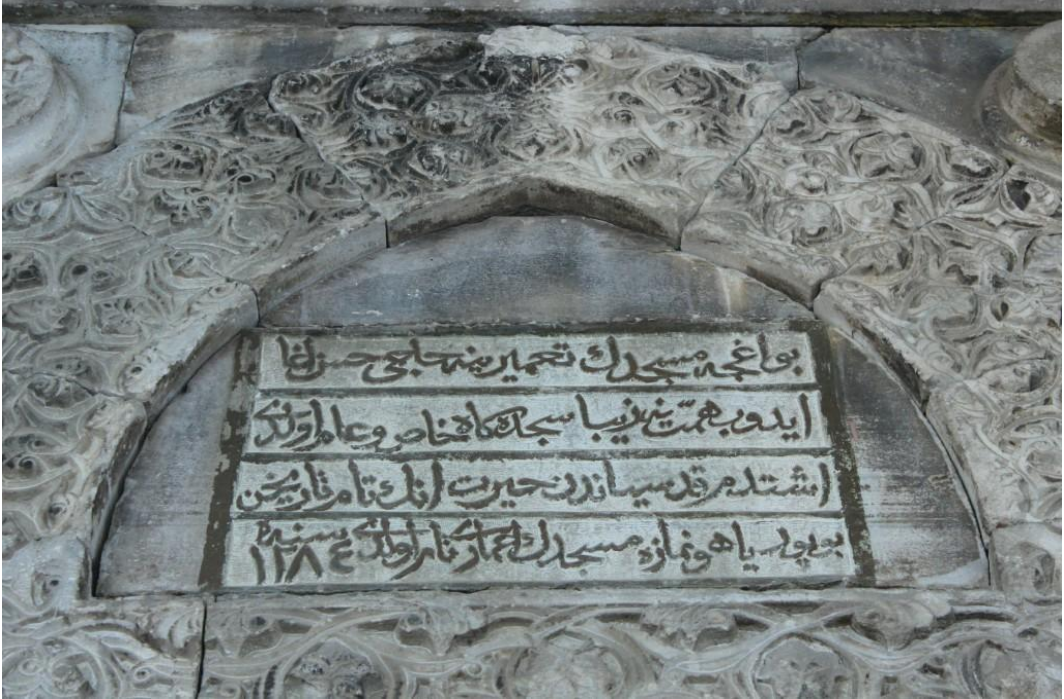 بو اغچه مسجدك تعميرينه حاجى حسن اغا
ايدوب همت نه زيبا سجده‌كاه خاص و عام اولدى
اشتدم قدسياندن حيرت انك تام تاريخن
بويوريا هو نمازه مسجدك اعمارى تام اولدى سنه ١١٨٤